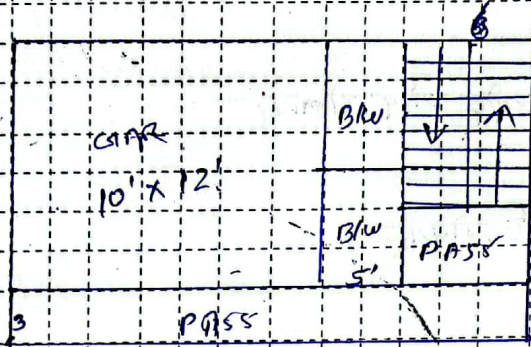 B/W
GAR
10' x 12'
B/W
5'
PASS
3
PASS